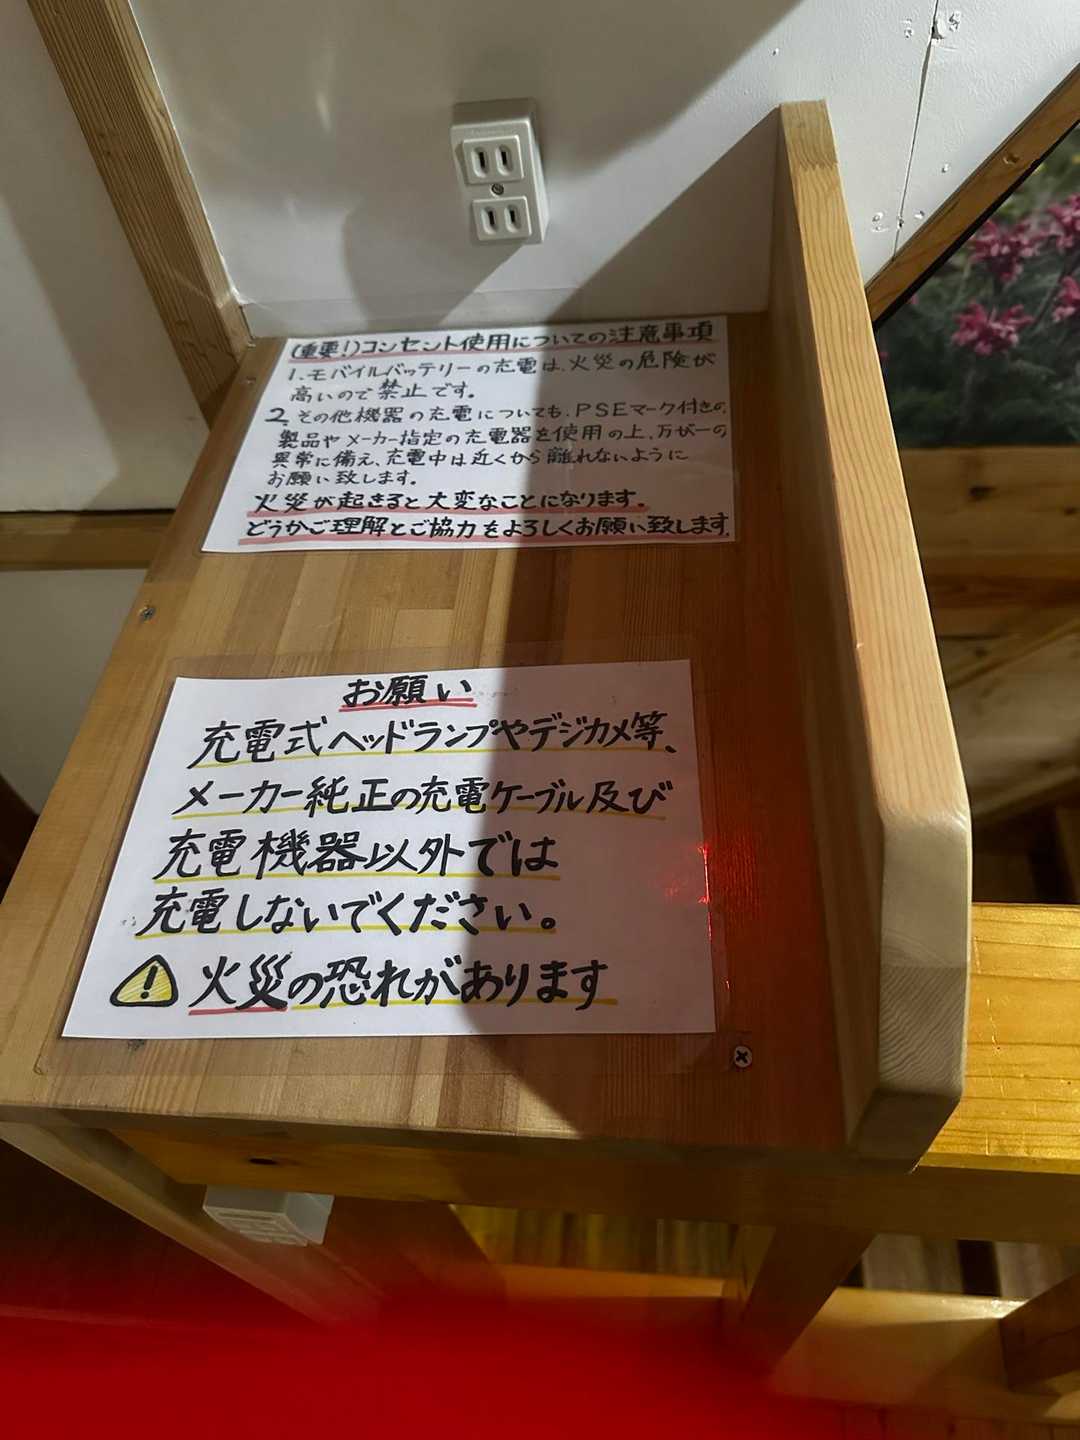 (重要!)コンセント使用についての注意事項
1.モバイルバッテリーの充電は、火災の危険が
高いので禁止です。
2.その他機器の充電についても、PSEマーク付きの
製品やメーカー指定の充電器を使用の上、万が一の
異常に備え、充電中は近くから離れないように
お願い致します。
火災が起きると大変なことになります。
どうかご理解とご協力をよろしくお願い致します。
お願い
充電式ヘッドランプやデジカメ等、
メーカー純正の充電ケーブル及び
充電機器以外では
充電しないでください。
!火災の恐れがあります